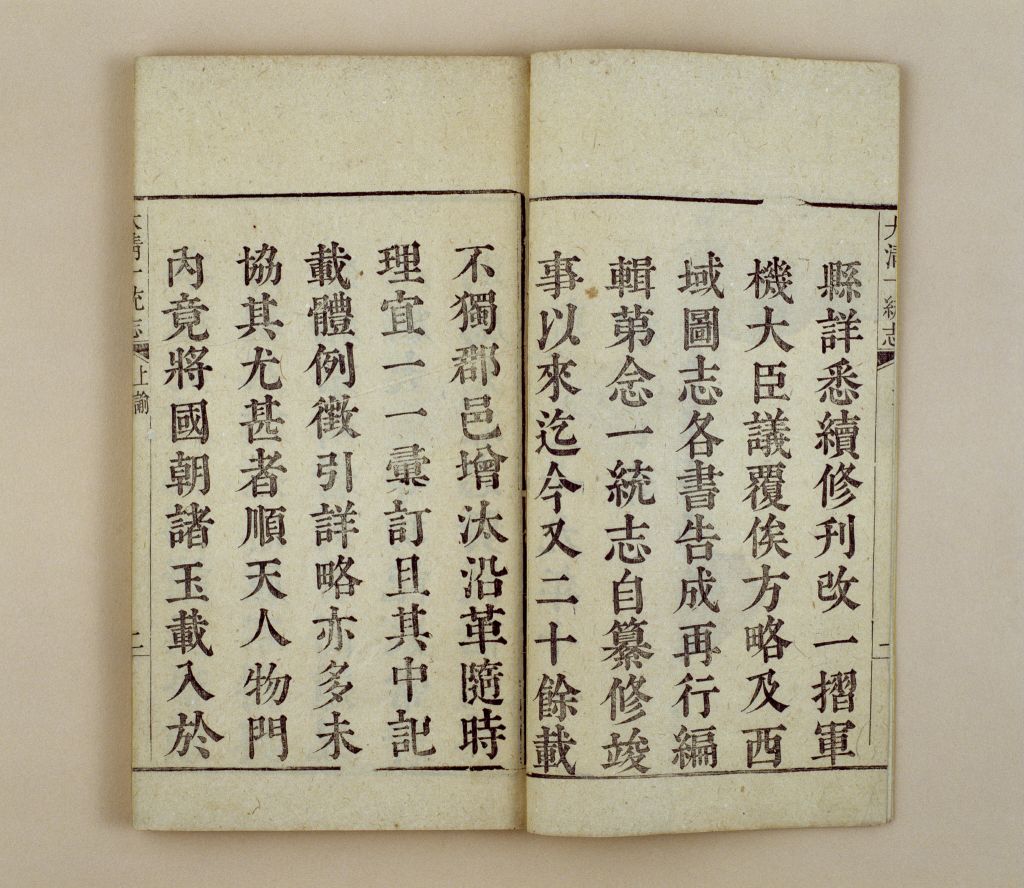 大清一統志
縣詳悉續修刊改一摺軍
機大臣議覆俟方略及西
域圖志各書告成再行編
輯第念一統志自纂修竣
事以來迄今又二十餘載
不獨郡邑增汰沿革隨時
理宜一一彙訂且其中記
載體例徵引詳略亦多未
協其尤甚者順天人物門
內竟將國朝諸王載入於
大清一統志 上諭 二